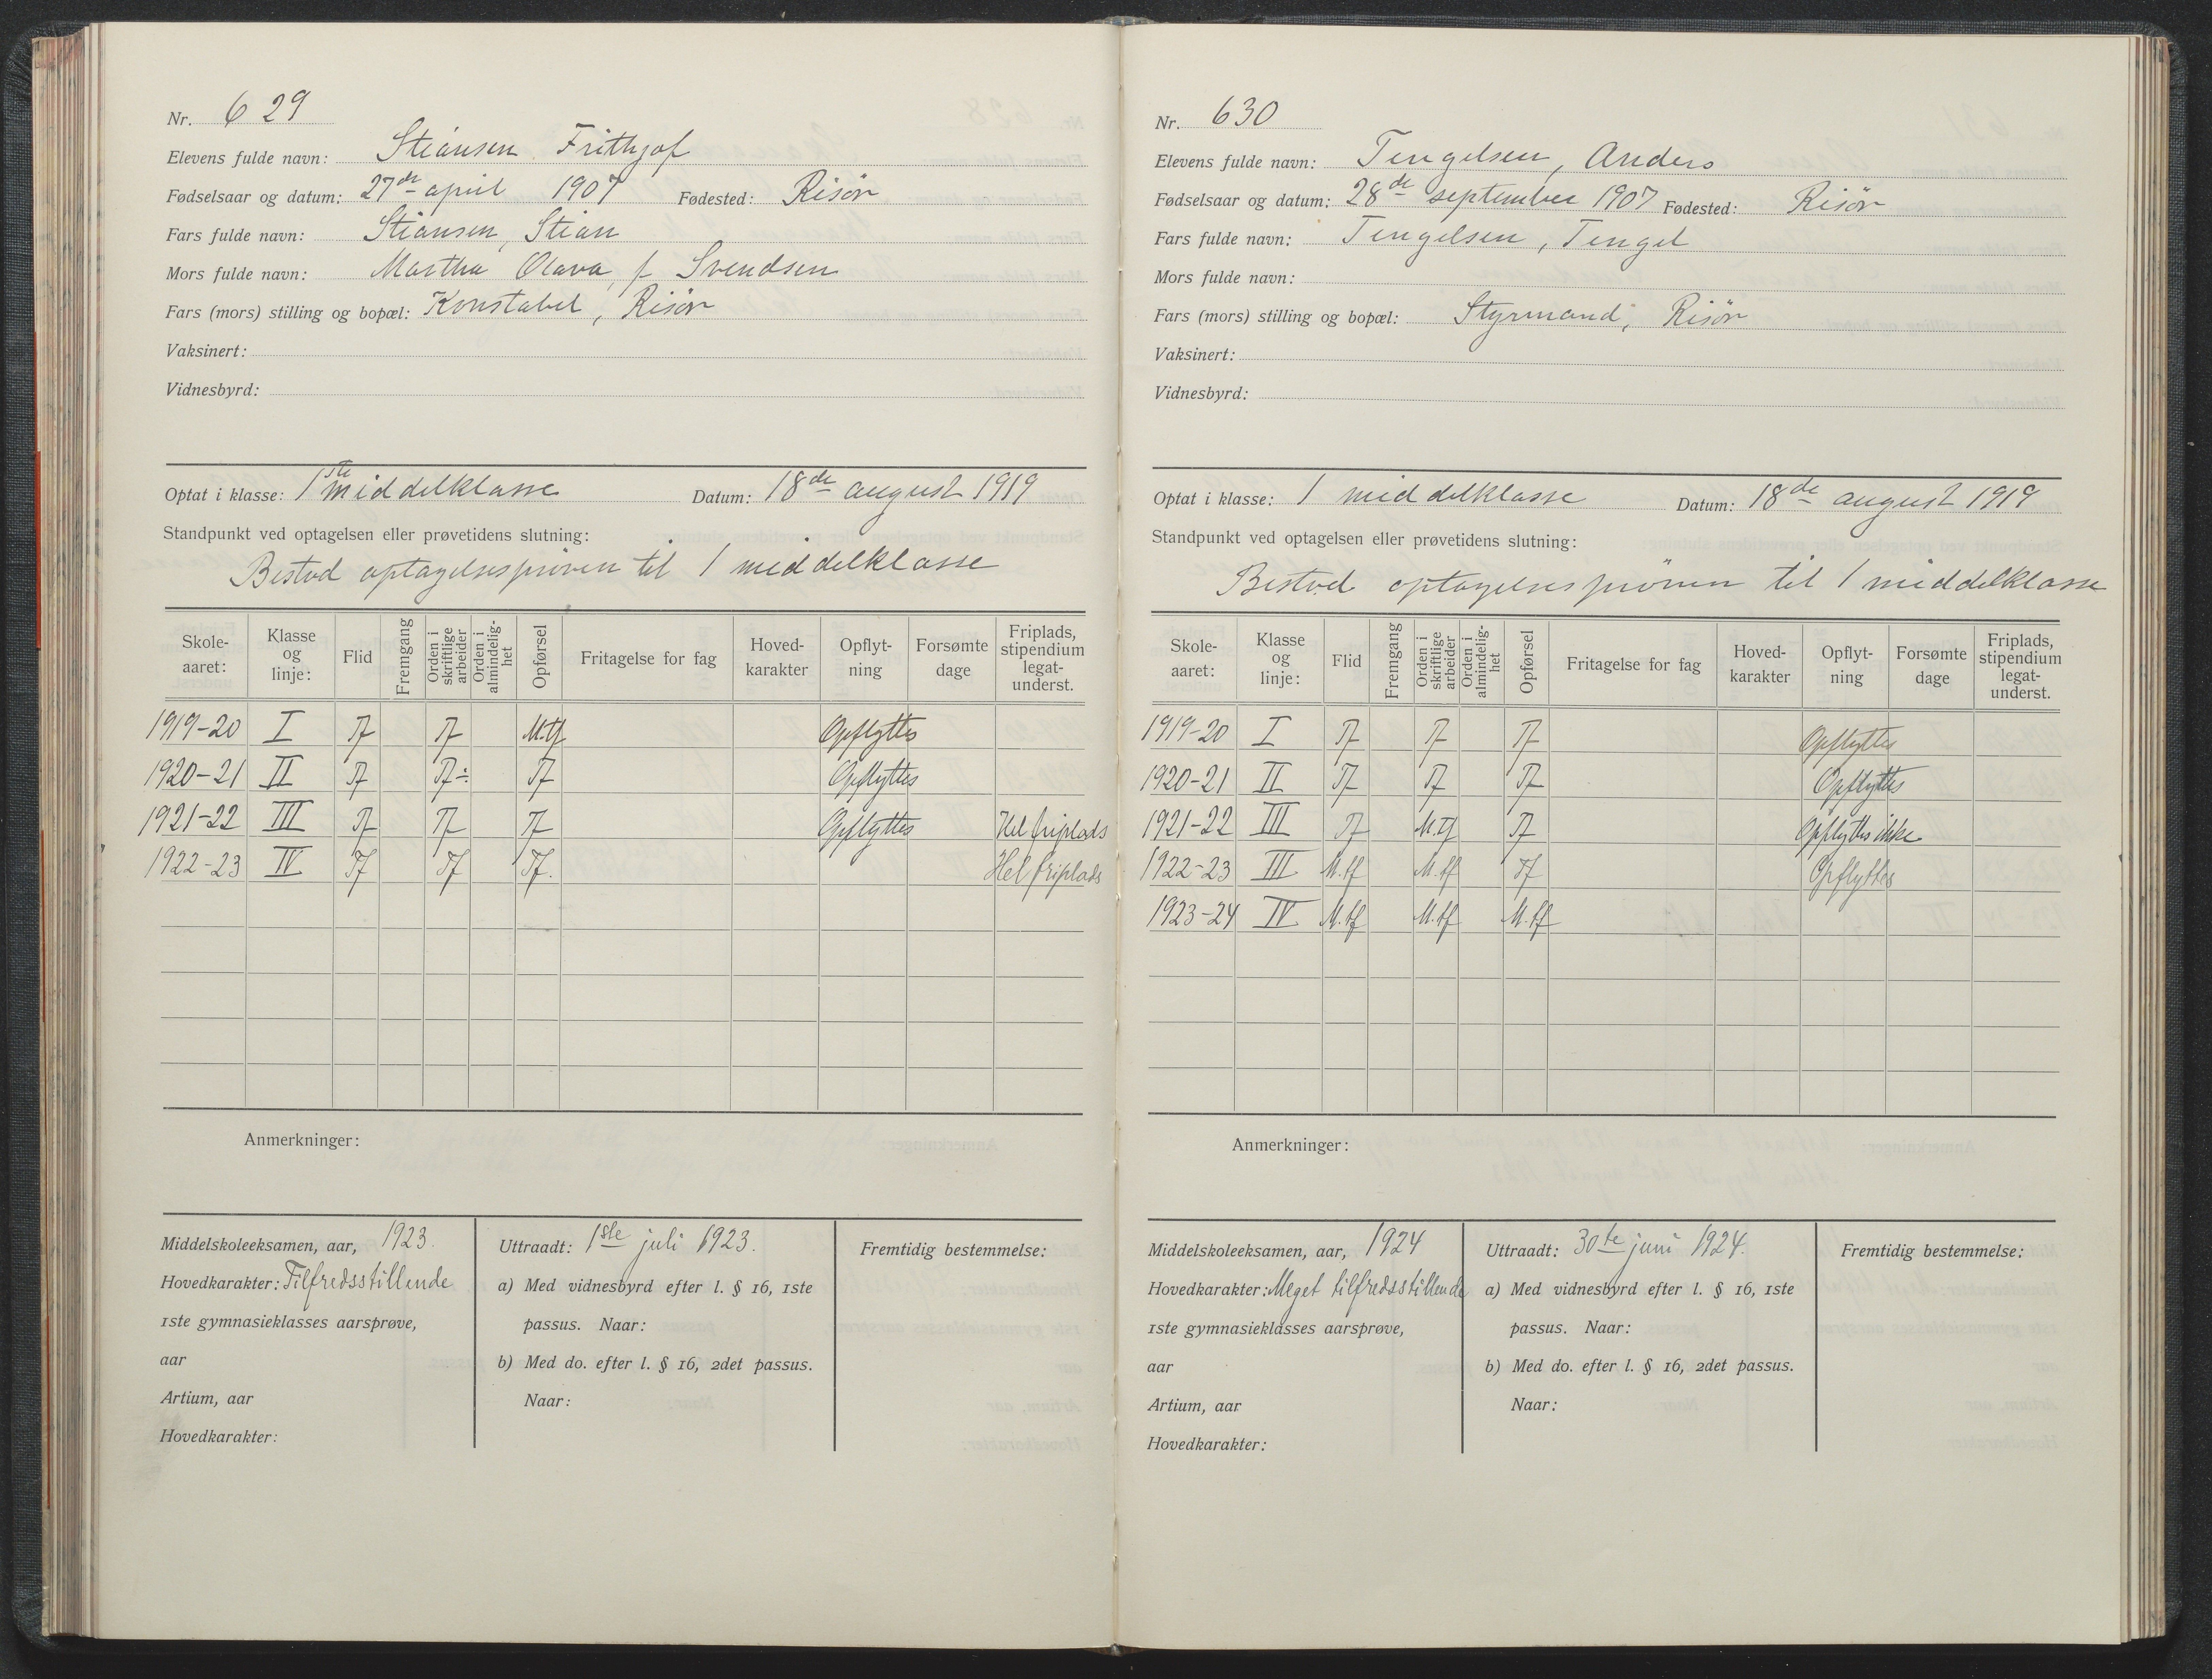 Nr. 629
Elevens fulde navn: Stiansen Frithjof
Fødselsaar og datum: 27de april 1907 Fødested: Risör
Fars fulde navn: Stiansen, Stian
Mors fulde navn: Martha Olava f Svendsen
Fars (mors) stilling og bopæl: Konstabel, Risör
Vaksinert:
Vidnesbyrd:
Optat i klasse: 1ste middelklasse Datum: 18de august 1919
Standpunkt ved optagelsen eller prøvetidens slutning:
Bestod optagelsespröven til 1 middelklasse
Skole-aaret: Klasse og linje: Flid Fremgang Orden i skriftlige arbeider Orden i almindelig-het Opførsel Fritagelse for fag Hoved-karakter Opflyt-ning Forsømte dage Friplads, stipendium legat-underst.
1919-20 I Tf Tf M.tf Opflyttes
1920-21 II Tf Tf÷ Tf Opflyttes
1921-22 III Tf Tf Tf Opflyttes Hel friplads
1922-23 IV Tf Tf Tf. Hel friplads
Anmerkninger:
Middelskoleeksamen, aar, 1923.
Hovedkarakter: Tilfredsstillende
1ste gymnasieklasses aarsprøve,
aar
Artium, aar
Hovedkarakter:
Uttraadt: 1ste juli 1923.
a) Med vidnesbyrd efter l. § 16, 1ste
passus. Naar:
b) Med do. efter l. § 16, 2det passus.
Naar:
Fremtidig bestemmelse:
Nr. 630
Elevens fulde navn: Tengelsen, Anders
Fødselsaar og datum: 28de september 1907 Fødested: Risör
Fars fulde navn: Tengelsen, Tengel
Mors fulde navn:
Fars (mors) stilling og bopæl: Styrmand, Risör
Vaksinert:
Vidnesbyrd:
Optat i klasse: 1 middelklasse Datum: 18de august 1919
Standpunkt ved optagelsen eller prøvetidens slutning:
Bestod optagelsespröven til 1 middelklasse
Skole-aaret: Klasse og linje: Flid Fremgang Orden i skriftlige arbeider Orden i almindelig-het Opførsel Fritagelse for fag Hoved-karakter Opflyt-ning Forsømte dage Friplads, stipendium legat-underst.
1919-20 I Tf Tf Tf Opflyttes
1920-21 II Tf Tf Tf Opflyttes
1921-22 III Tf M.tf Tf Opflyttes ikke
1922-23 III M.tf M.tf Tf Opflyttes
1923-24 IV M.tf M.tf M.tf
Anmerkninger:
Middelskoleeksamen, aar, 1924
Hovedkarakter: Meget tilfredsstillende
1ste gymnasieklasses aarsprøve,
aar
Artium, aar
Hovedkarakter:
Uttraadt: 30te juni 1924.
a) Med vidnesbyrd efter l. § 16, 1ste
passus. Naar:
b) Med do. efter l. § 16, 2det passus.
Naar:
Fremtidig bestemmelse: